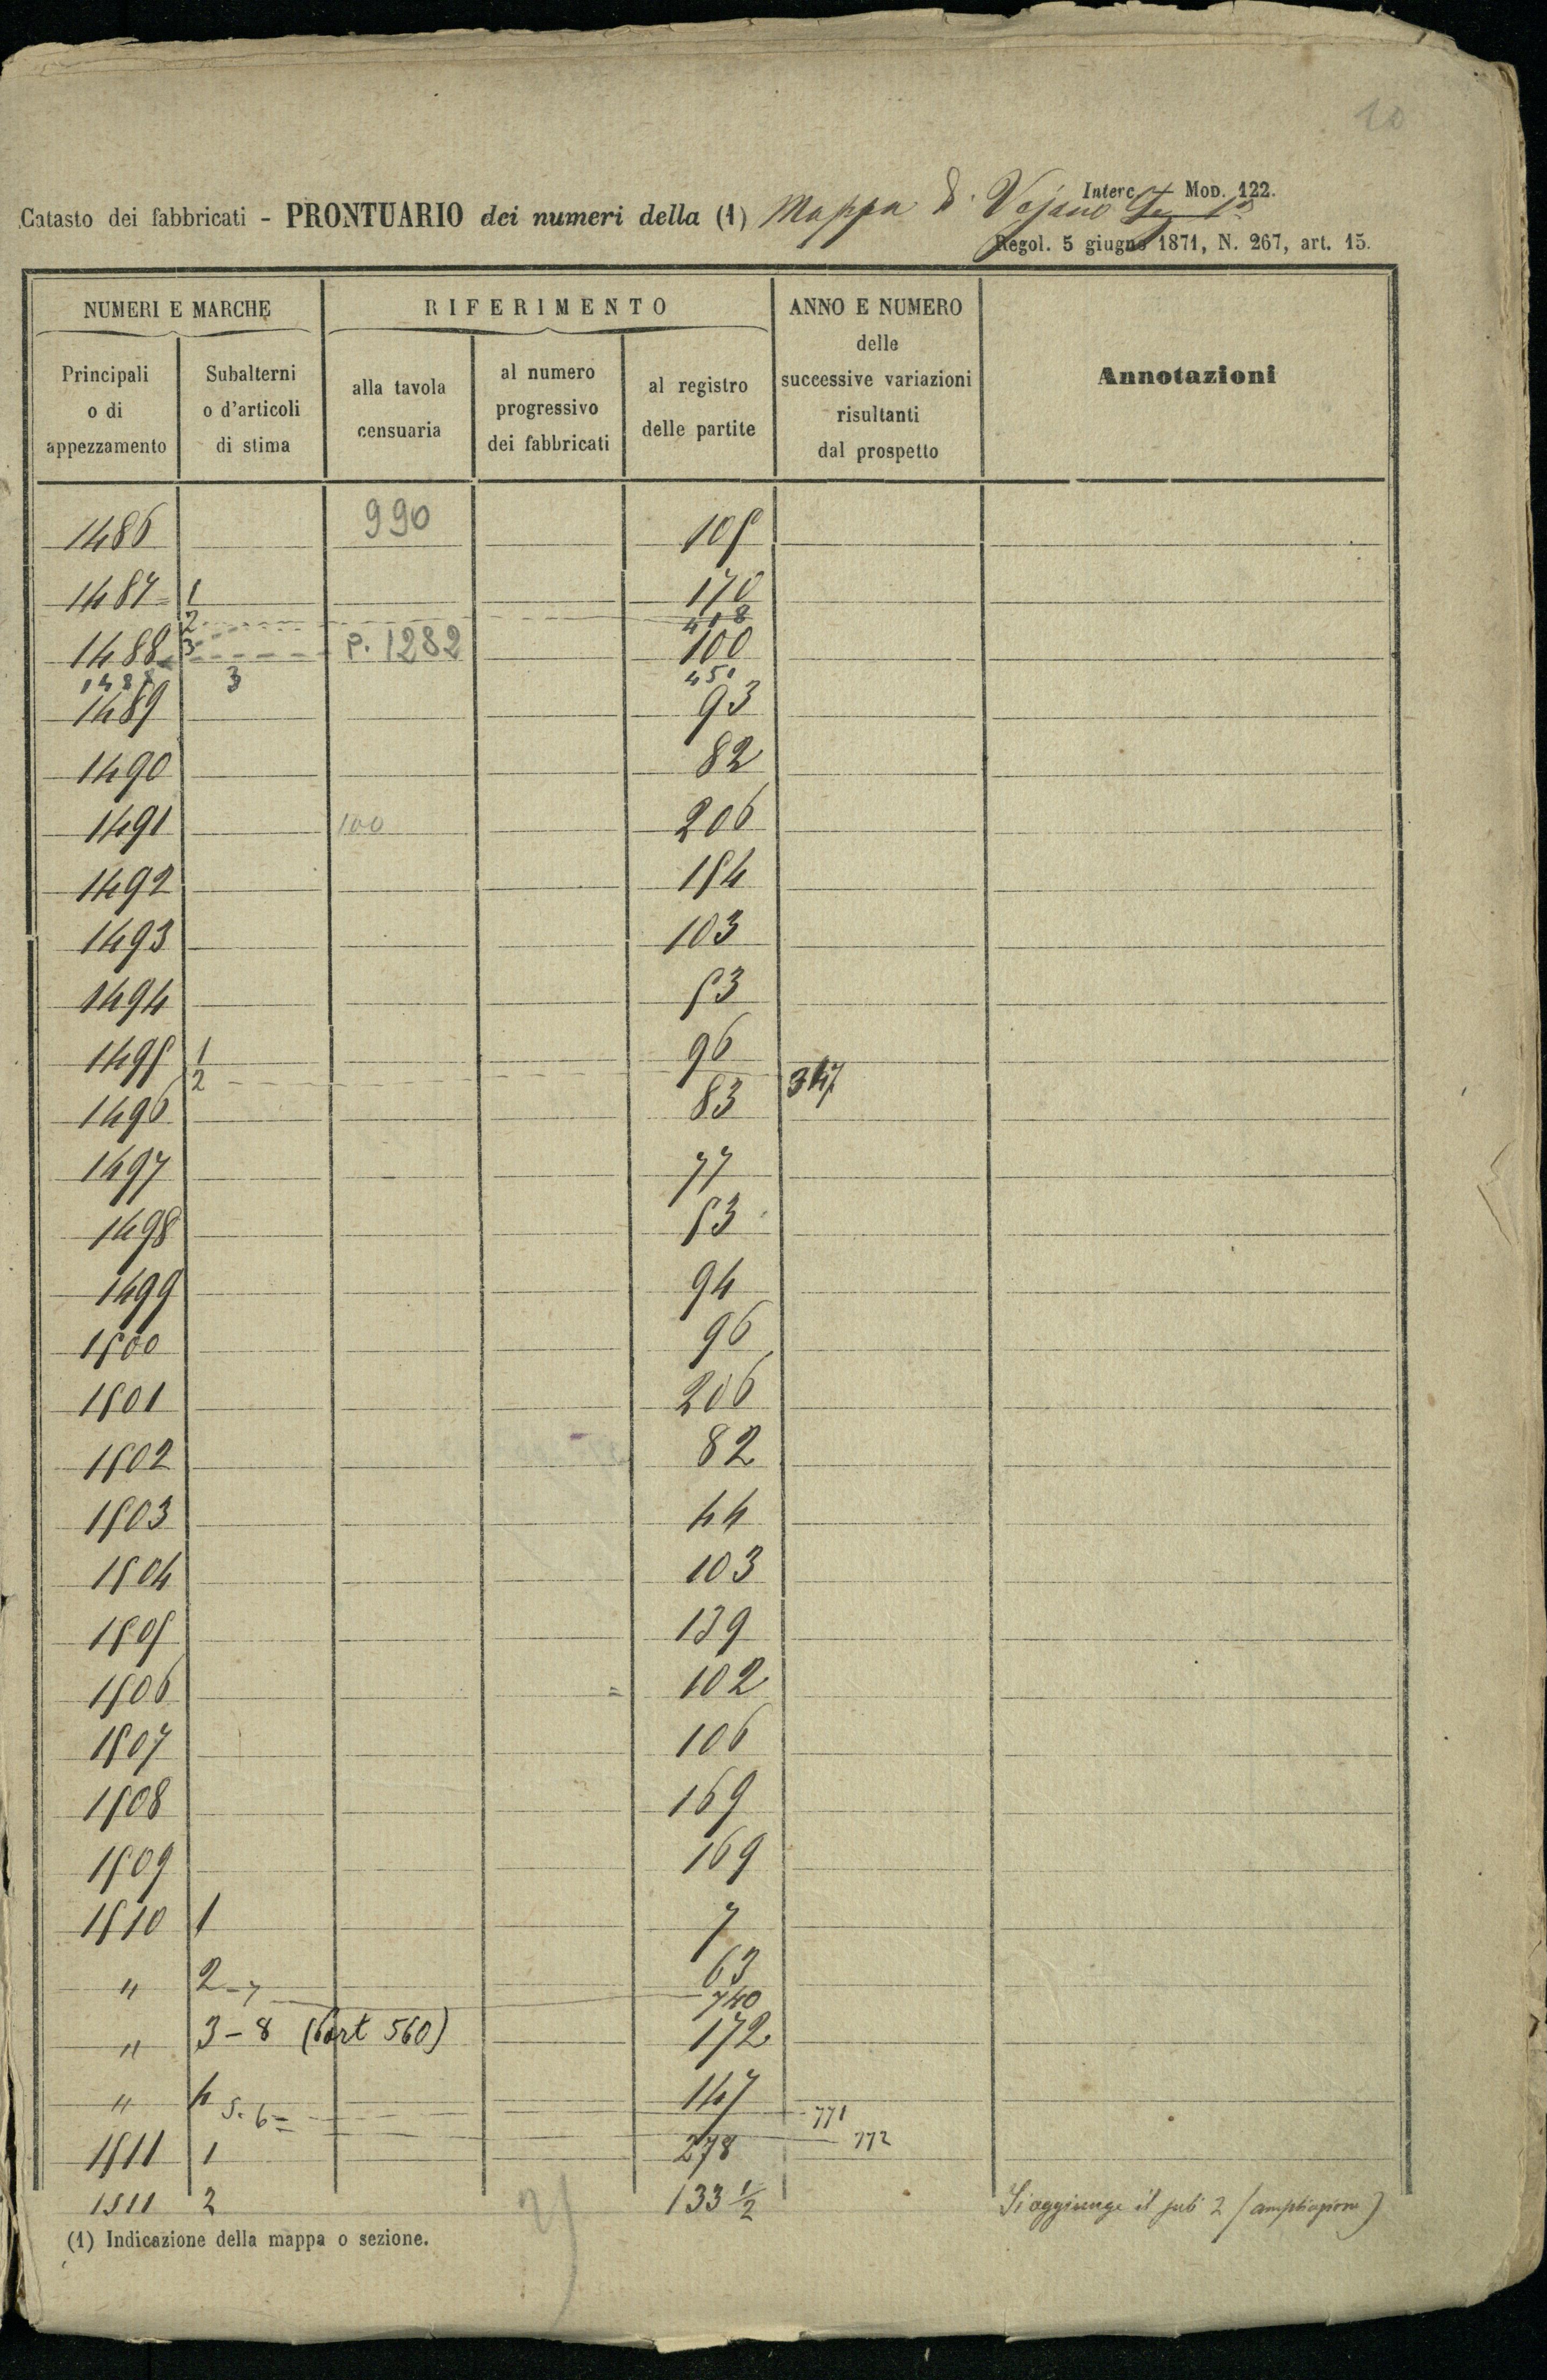 10
Interc. Mod. 122.
Catasto dei fabbricati - PRONTUARIO dei numeri della (1) Mappa di Vejano Sez. 1a
Regol. 5 giugno 1871, N. 267, art. 15.
NUMERI E MARCHE RIFERIMENTO ANNO E NUMERO delle successive variazioni risultanti dal prospetto Annotazioni
Principali o di appezzamento Subalterni o d'articoli di stima alla tavola censuaria al numero progressivo dei fabbricati al registro delle partite
1486 990 105
1487 1 170
2 418
1488 3 P. 1282 100
1488 3 451
1489 93
1490 82
1491 100 206
1492 154
1493 103
1494 53
1495 1 96
2 347
1496 83
1497 77
1498 53
1499 94
1500 96
1501 206
1502 82
1503 44
1504 103
1505 139
1506 102
1507 106
1508 169
1509 169
1510 1 7
" 2-7 63
740
" 3-8 (Part 560) 172
" 4 147
5. 6= 771
772
1511 1 278
1511 2 133 1/2 Si aggiunge il sub 2 (ampliazione)
(1) Indicazione della mappa o sezione.